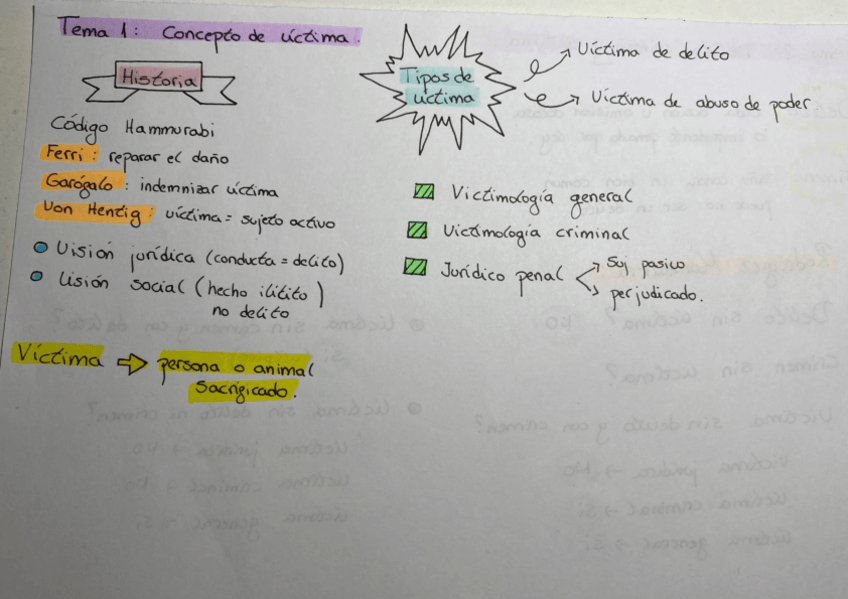 Tema 1: Concepto de víctima.
Historia
Código Hammurabi
Ferri: reparar el daño
Garófalo: indemnizar víctima
Von Hentig: víctima = sujeto activo
Visión jurídica (conducta = delito)
Visión social (hecho ilitito)
no delito
Víctima ⇒ persona o animal
sacrificado.
Tipos de
víctima
Víctima de delito
Víctima de abuso de poder
Victimología general
Victimología criminal
Jurídico penal
Suj pasico
perjudicado.